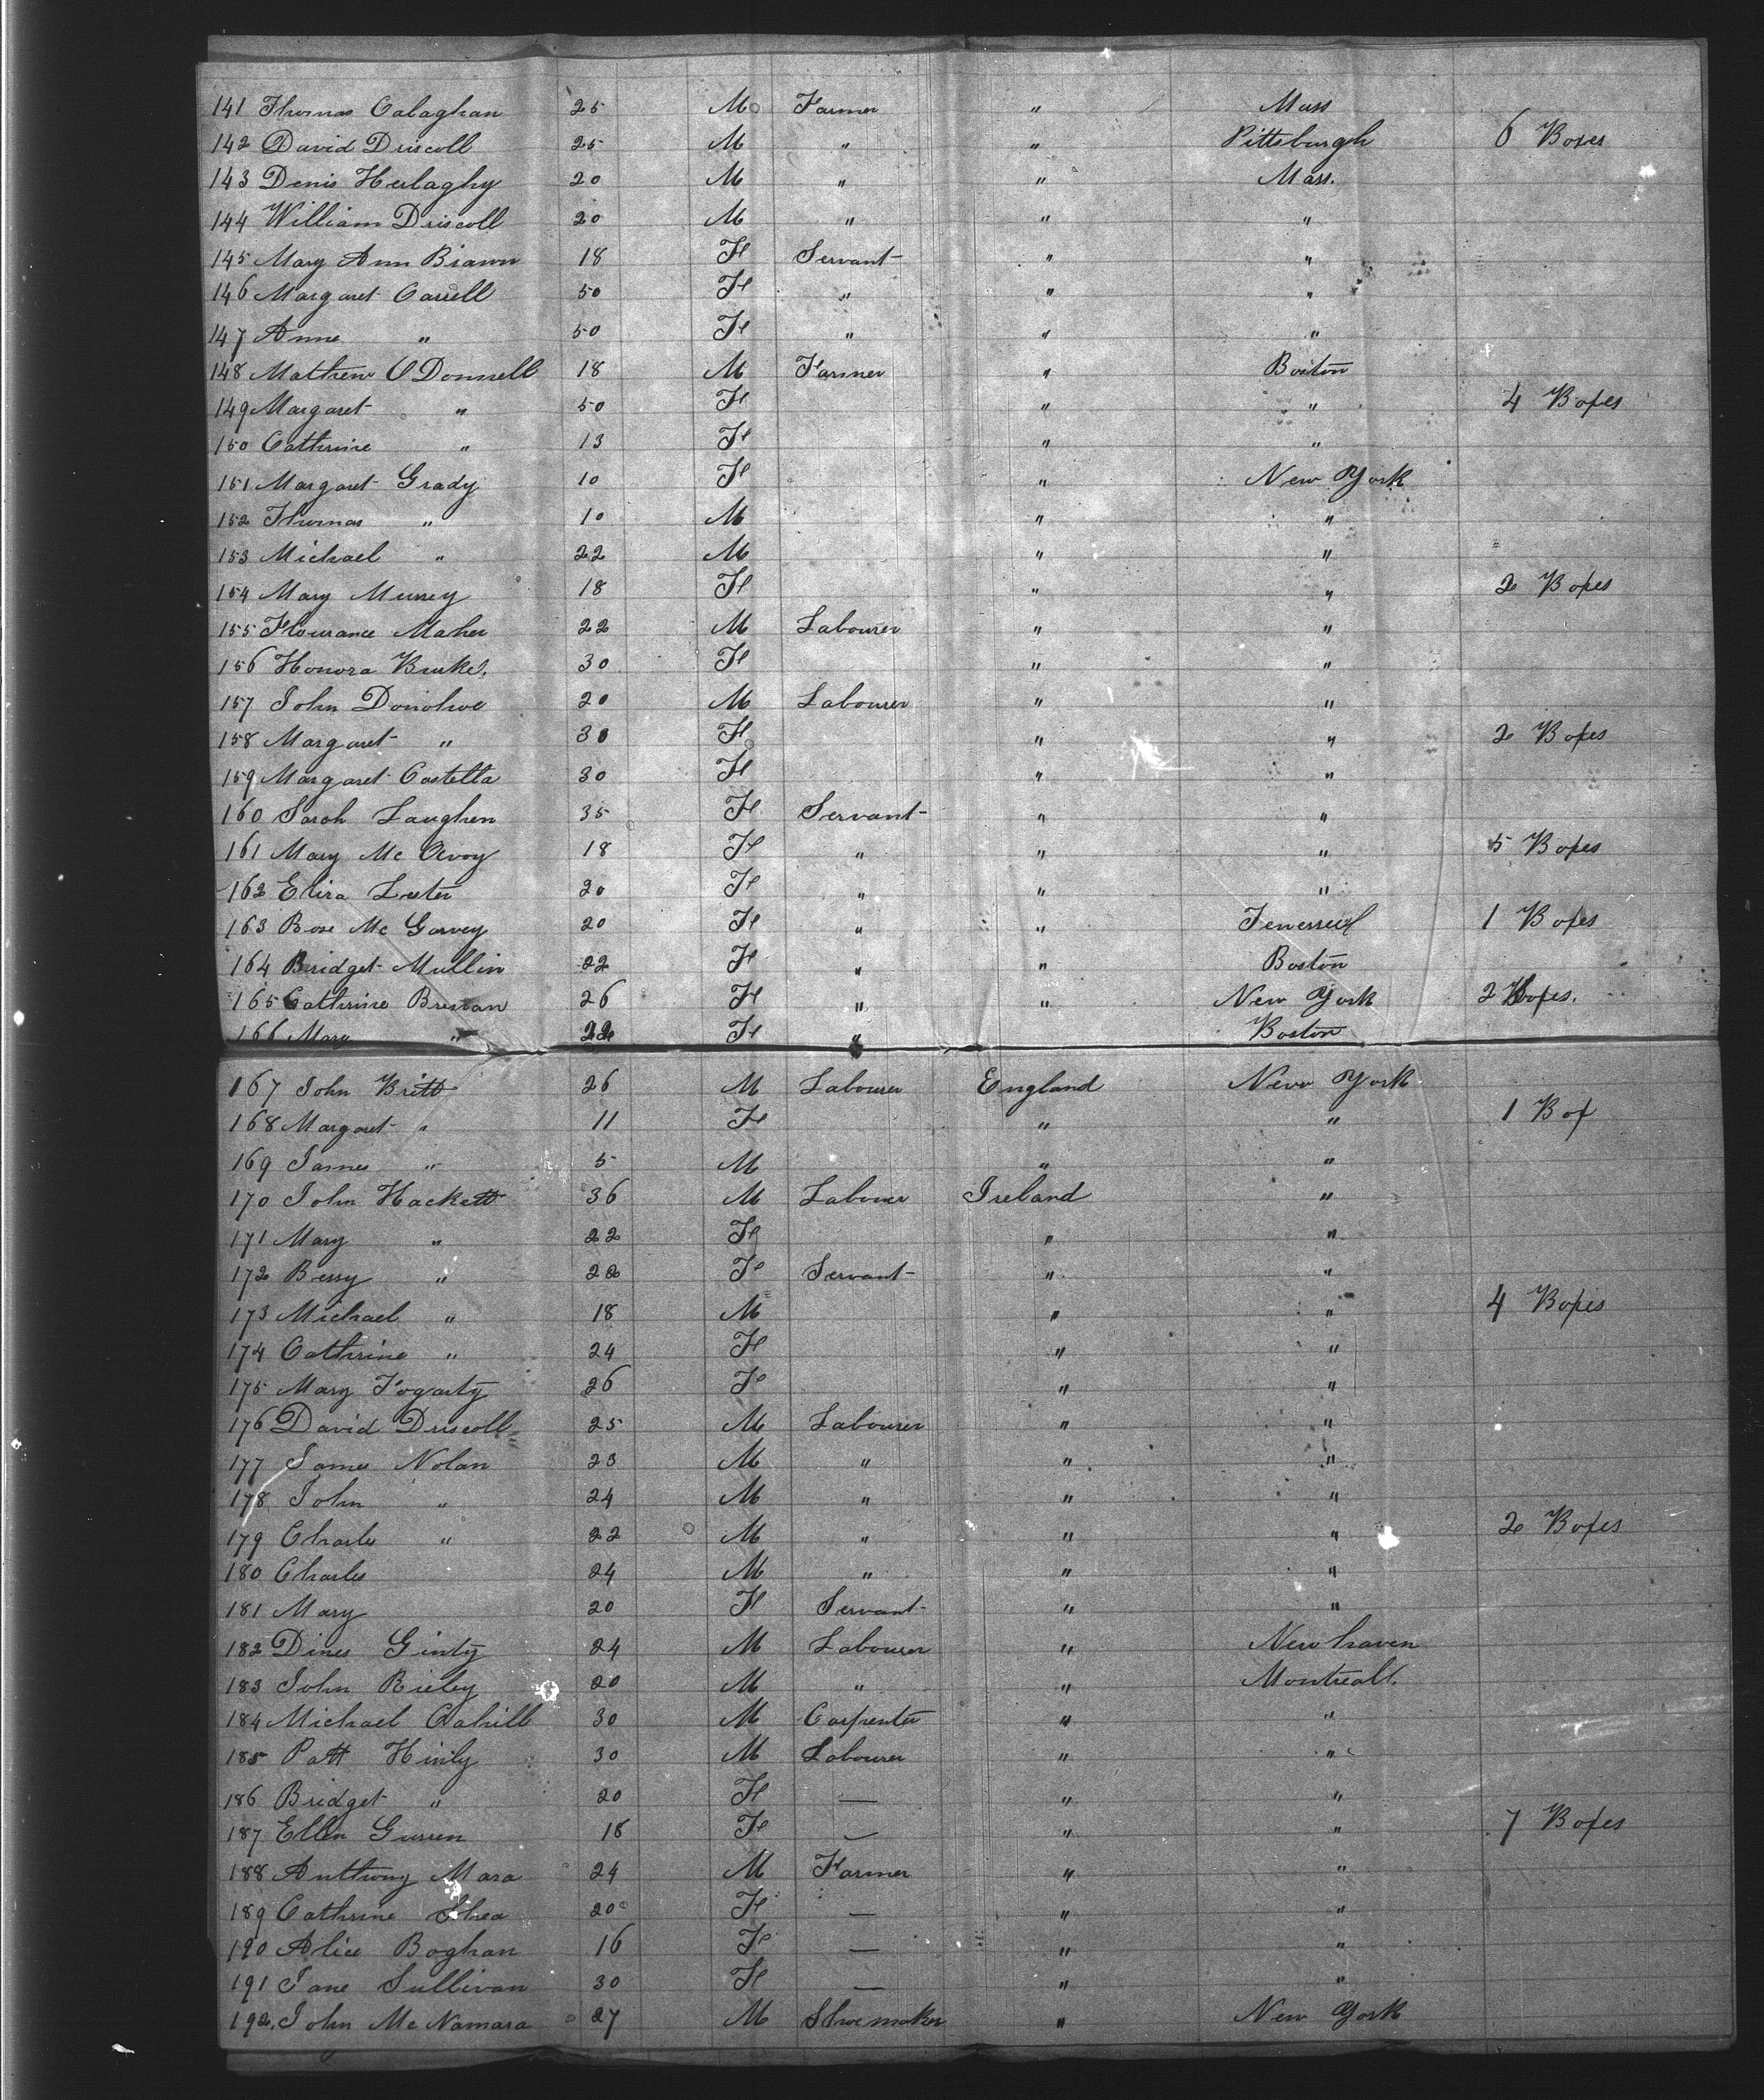 141 Thomas Calaghan 25 M Farmer " Mass
142 David Driscoll 25 M " " Pittsburgh 6 Boxes
143 Denis Herlaghy 20 M " " Mass.
144 William Driscoll 20 M " " "
145 Mary Ann Brawn 18 F Servant " "
146 Margaret Carrell 50 F " " "
147 Anne " 50 F " " "
148 Mathew O Donnell 18 M Farmer " Boston
149 Margaret " 50 F " " 4 Boxes
150 Cathrine " 13 F " "
151 Margaret Grady 10 F " New York
152 Thomas " 10 M " "
153 Michael " 22 M " "
154 Mary 18 F " " 2 Boxes
155 Flourance Maher 22 M Labourer " "
156 Honora Burke 30 F " "
157 John Donohoe 20 M Labourer " "
158 Margaret " 30 F " " 2 Boxes
159 Margaret Costella 30 F " "
160 Sarah Laughen 35 F Servant " "
161 Mary Mc Avoy 18 F " " " 5 Boxes
162 Eliza 20 F " " "
163 Rose Mc Garvey 20 F " " 1 Boxes
164 Bridget Mullin 22 F " " Boston
165 Cathrine Brenan 26 F " " New York 2 Boxes.
166 Mary " 22 F " Boston
167 John Britt 26 M Labourer England New York
168 Margaret " 11 F " " 1 Box
169 James " 5 M " "
170 John Hackett 36 M Labourer Ireland "
171 Mary " 22 F " "
172 Bessy " 22 F Servant " "
173 Michael " 18 M " " 4 Boxes
174 Cathrine " 24 F " "
175 Mary Fogarty 26 F " "
176 David Driscoll 25 M Labourer " "
177 James Nolan 23 M " " "
178 John " 24 M " " "
179 Charles " 22 M " " " 2 Boxes
180 Charles 24 M " " "
181 Mary 20 F Servant " "
182 Dines Ginty 24 M Labourer " Newhaven
183 John Rieley 20 M " " Montreall.
184 Michael Cahill 30 M Carpenter " "
185 Patt Hinly 30 M Labourer " "
186 Bridget " 20 F — " "
187 Ellen Gurren 18 F — " " 7 Boxes
188 Anthony Mara 24 M Farmer " "
189 Cathrine Shea 20 F — " "
190 Alice Boghan 16 F — " "
191 Jane Sullivan 30 F — " "
192. John Mc Namara 27 M Shoemaker " New York